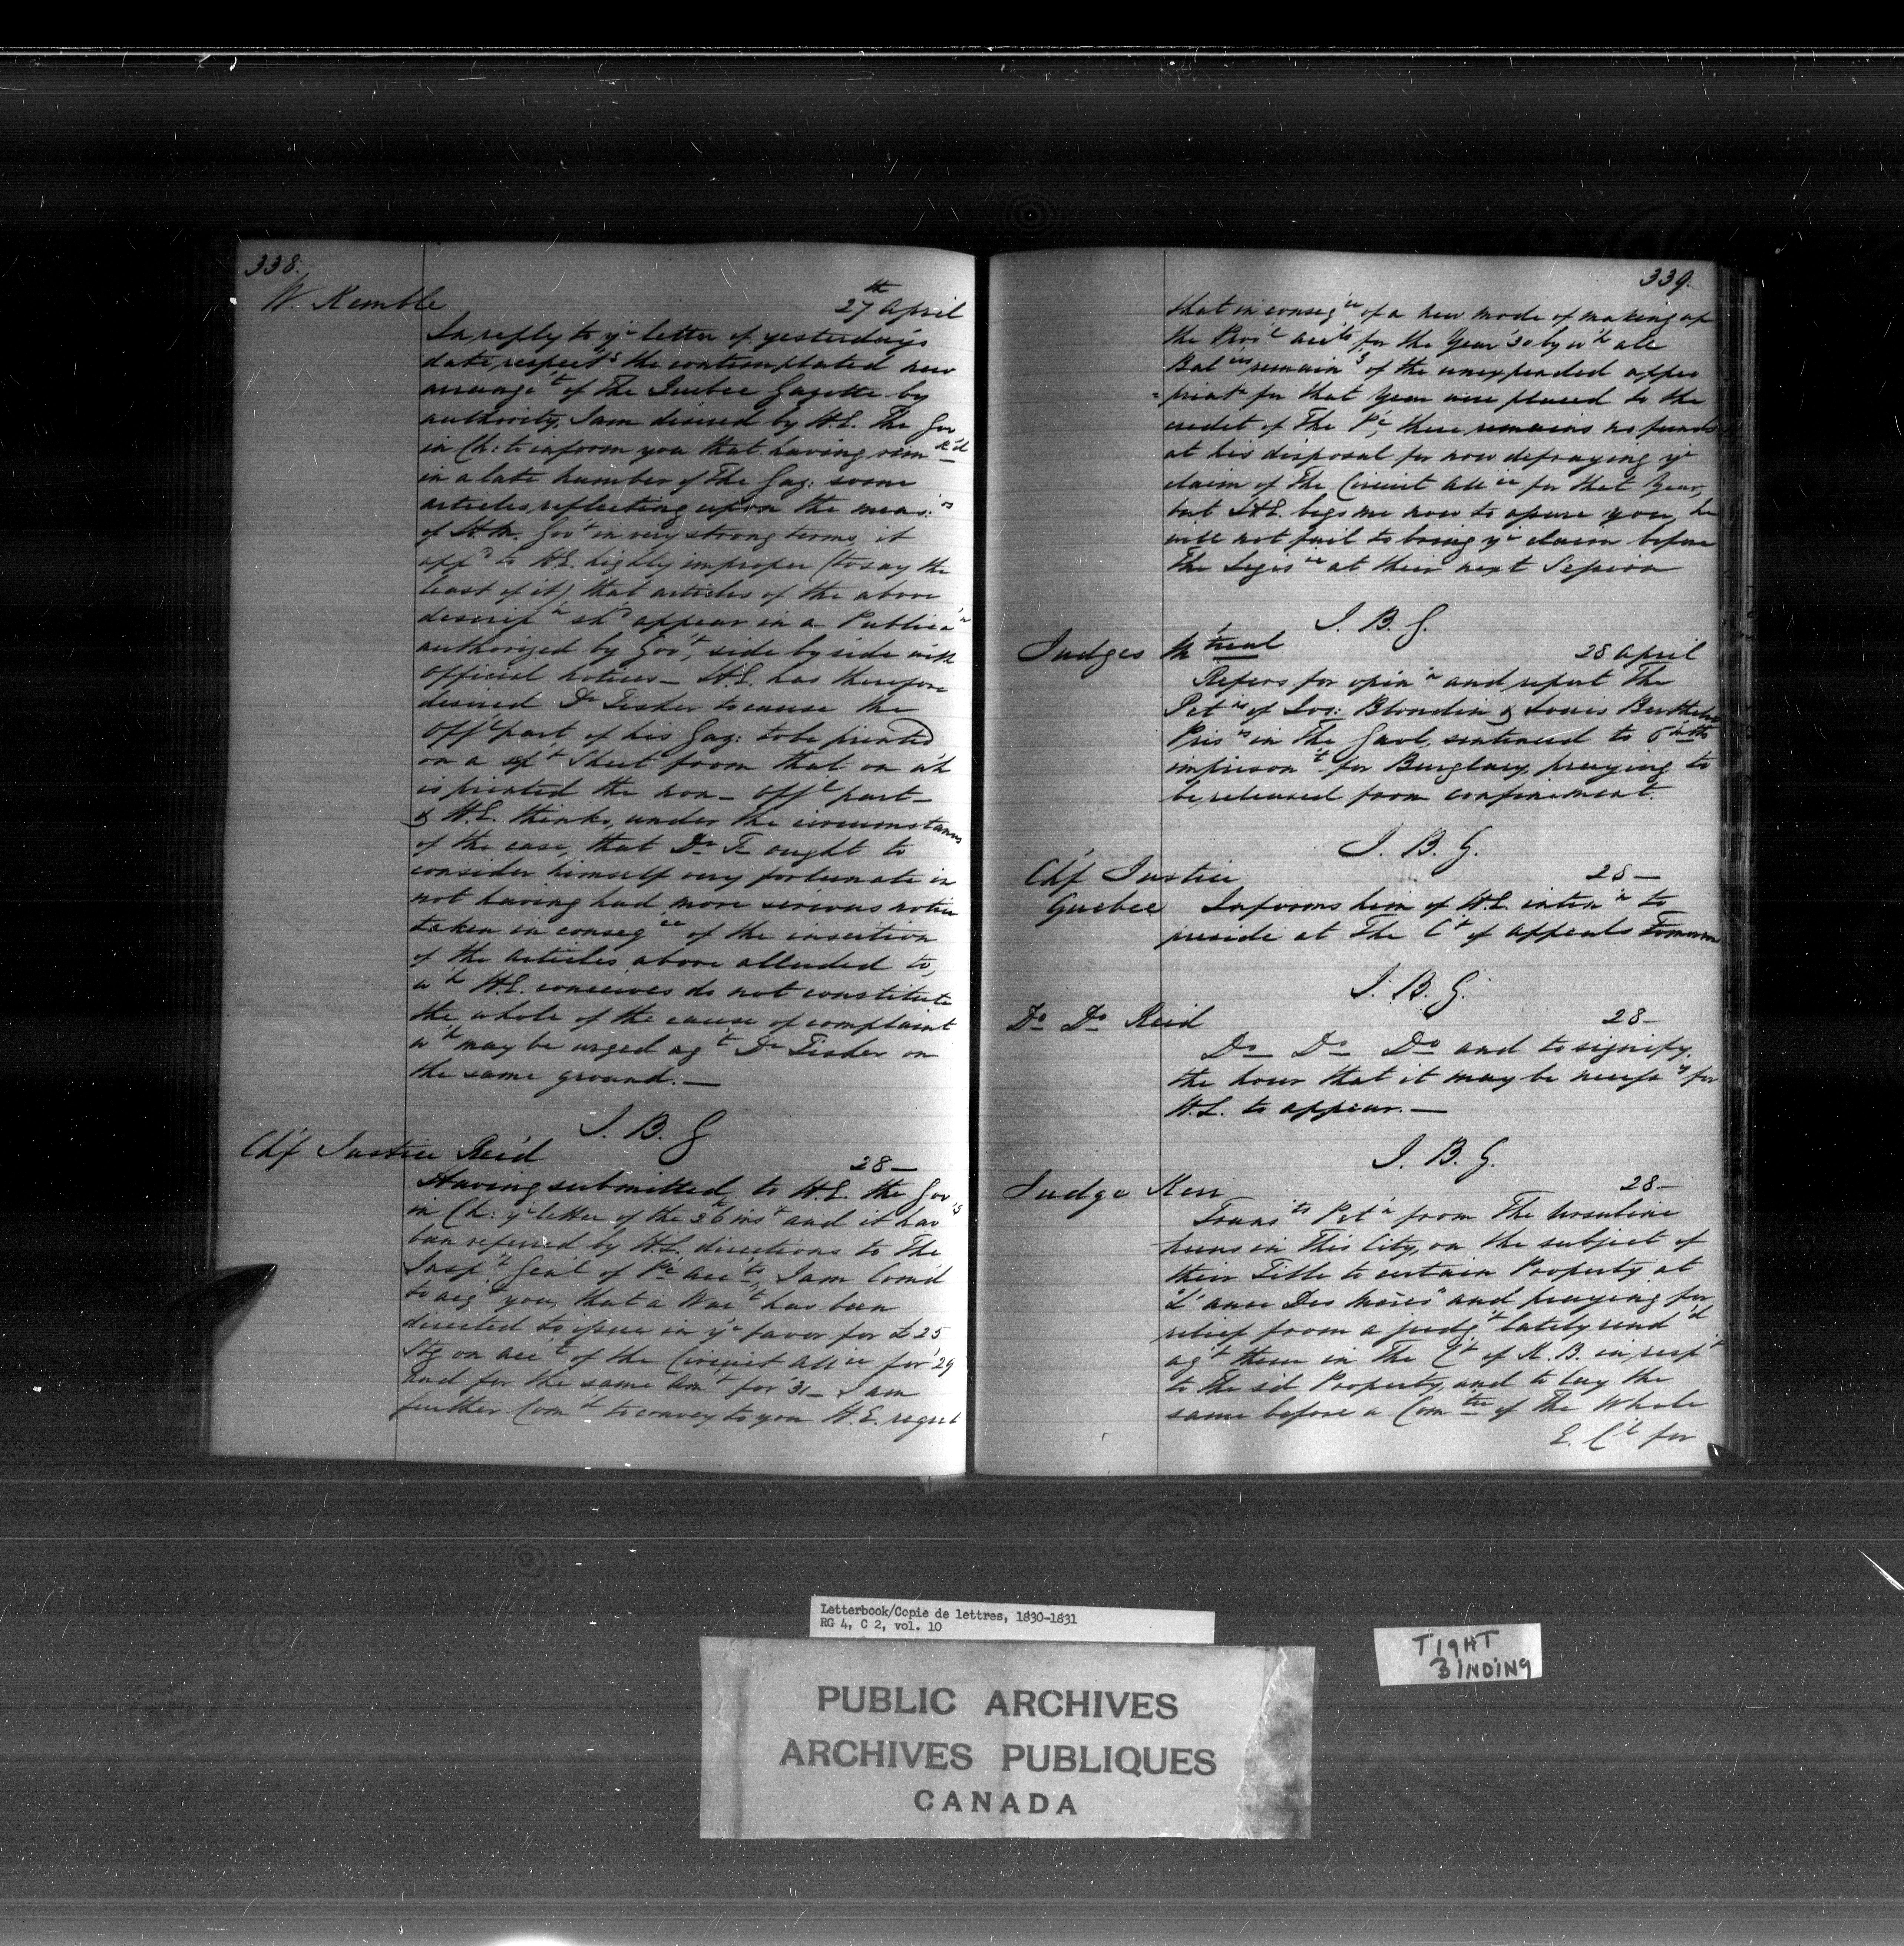 338.
W. Kemble
27th April
In reply to yr letter of yesterday's
date respectg the contemplated new
arranget of The Quebec Gazette by
authority, I am desired by H.E. The Gov
in Ch: to inform you that having remk'd
in a late number of The Gaz: some
articles reflecting upon the meas:rs
of H.M. Govt in very strong terms, it
appd to H.E. highly improper (to say the
least of it) that articles of the above
descripn shd appear in a Publican
authorized by Govt, side by side with
Official notices — H.E. has therefore
desired Dr Fisher to cause the
Offl part of his Gaz: to be printed
on a spt Sheet from that on wh
is printed the non-Offl part —
& H.E. thinks, under the circumstances
of the case, that Dr F— ought to
consider himself very fortunate in
not having had more serious notice
taken in conseqce of the insertion
of the articles above alluded to,
wh H.E. conceives do not constitute
the whole of the cause of complaint
wh may be urged agt Dr Fisher on
the same ground. —
J. B. G
Chf Justice Reid
28 —
Having submitted to H.E. the Gov
in Ch: yr letter of the 26th inst and it has
been referred by H.E.'s directions to The
Inspr Gen'l of Pc accts, I am Com'd
to acqt you, that a Wart has been
directed to issue in yr favor for £25
Stg on acct of the Circuit Allce for '29
and for the same amt for '31 — I am
further Comd to convey to you H.E. regret
339.
that in conseqce of a new mode of making up
the Provl accts for the Year '30 by wh all
Balces remaing of the unexpended appro
=priatn for that Year were placed to the
credit of The Pc, there remains no funds
at his disposal for now defraying yr
claim of the Circuit Allce for that Year,
but H.E. begs me now to assure you, he
will not fail to bring yr claim before
The Legisre at their next Session
J. B. G.
Judges Mtreal
28 April
Refers for opinn and report The
Petns of Jos: Blondin & Louis Berthelet
Prisrs in The Gaol, sentenced to 6 mths
imprisont for Burglary, praying to
be released from confinement.
J. B. G.
Chf Justice
Quebec
28 —
Informs him of H.E. intenn to
preside at The Ct of Appeals Tomorrow
J. B. G.
Do Do Reid
28 —
Do — Do — Do and to signify
the hour that it may be necessy for
H.E. to appear. —
J. B. G.
Judge Kerr
28 —
Transts Petn from The Ursuline
Nuns in This City, on the subject of
their Title to certain Property at
"L'ance Des Meres" and praying for
relief from a judgt lately rend'd
agt them in The Ct of K.B. in respt
to the sd Property, and to lay the
same before a Comtee of The Whole
E. Cl for
Letterbook/Copie de lettres, 1830-1831
RG 4, C 2, vol. 10
PUBLIC ARCHIVES
ARCHIVES PUBLIQUES
CANADA
TIGHT
BINDING